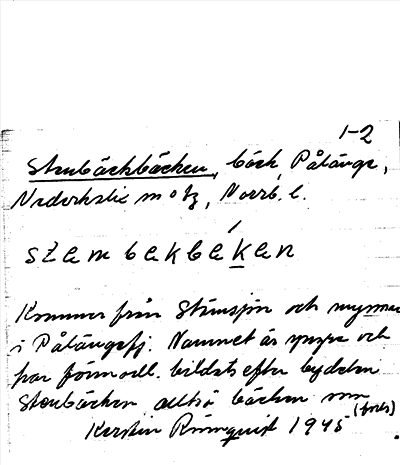 1-2
Stenbäckbäcken, bäck, Påläng,
Nederkalix , Norrb. l.
stembekbeken
Kommer från Stensjön och mynnar
i Pålängefj. Namnet är yngre och
har förmodl. bildats efter bydelen
Stenbäcken alltså bäcken som
(forts)
Kerstin Rönnquist 1945